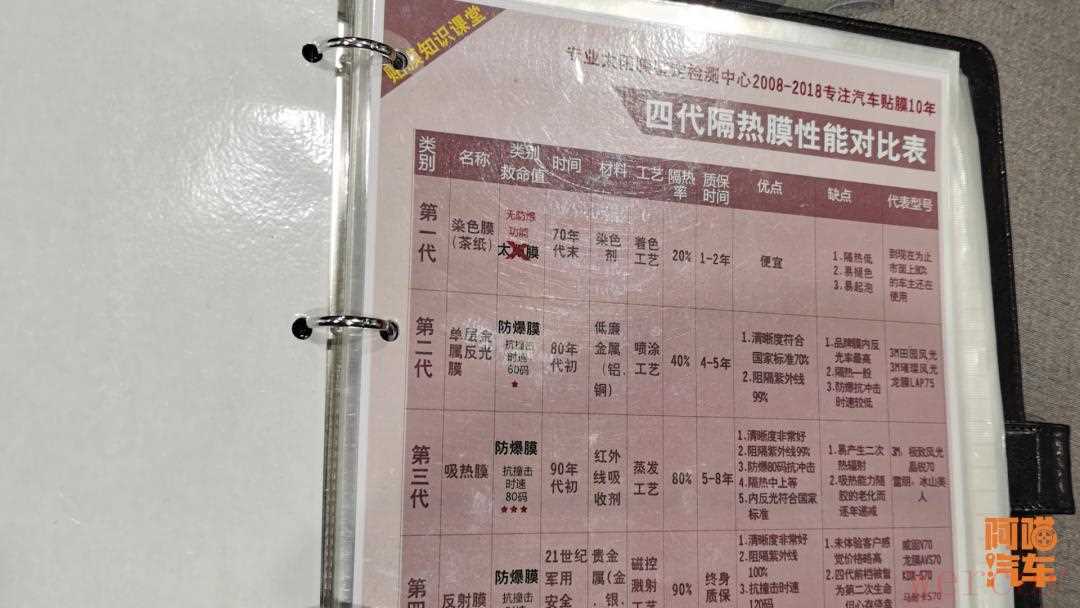 贴膜知识课堂
专业太阳膜 检测中心2008-2018专注汽车贴膜10年
四代隔热膜性能对比表
类别 名称 类别 救命值 时间 材料 工艺 隔热率 质保时间 优点 缺点 代表型号
第一代
染色膜
(茶纸)
无防爆
功能
太 膜
70年
代末
染色
剂
着色
工艺
20%
1-2年
便宜
1.隔热低
2.易褪色
3.易起泡
到现在为止
市面上80%
的车主还在
使用
第二代
单层金
属反光
膜
防爆膜
抗撞击
时速
60码
★
80年
代初
低廉
金属
(铝.
铜)
喷涂
工艺
40%
4-5年
1.清晰度符合
国家标准70%
2.阻隔紫外线
99%
1.品牌膜内反
光率最高
2.隔热一般
3.防爆抗冲击
时速较低
3M田园风光
3M璀璨风光
龙膜LAP75
第三代
吸热膜
防爆膜
抗撞击
时速
80码
★★★
90年
代初
红外
线吸
收剂
蒸发
工艺
80%
5-8年
1.清晰度非常好
2.阻隔紫外线99%
3.防爆80码抗冲击
4.隔热中上等
5.内反光符合国家
标准
1.易产生二次
热辐射
2.吸热能力随
胶的老化而
逐年递减
3M:极致风光
晶锐70
雷朋:冰山美
人
第四
反射膜
防爆膜
抗撞击
21世纪
军用
安全
贵金
属(金
.银.
磁控
溅射
工艺
90%
终身
质保
1.清晰度非常好
2.阻隔紫外线
100%
3.抗撞击时速
120码
1.未体验客户感
觉价格略高
2.四代前档被誉
为第二次生命
但心存侥幸
威固V70
龙膜AVS70
阿喵
汽车